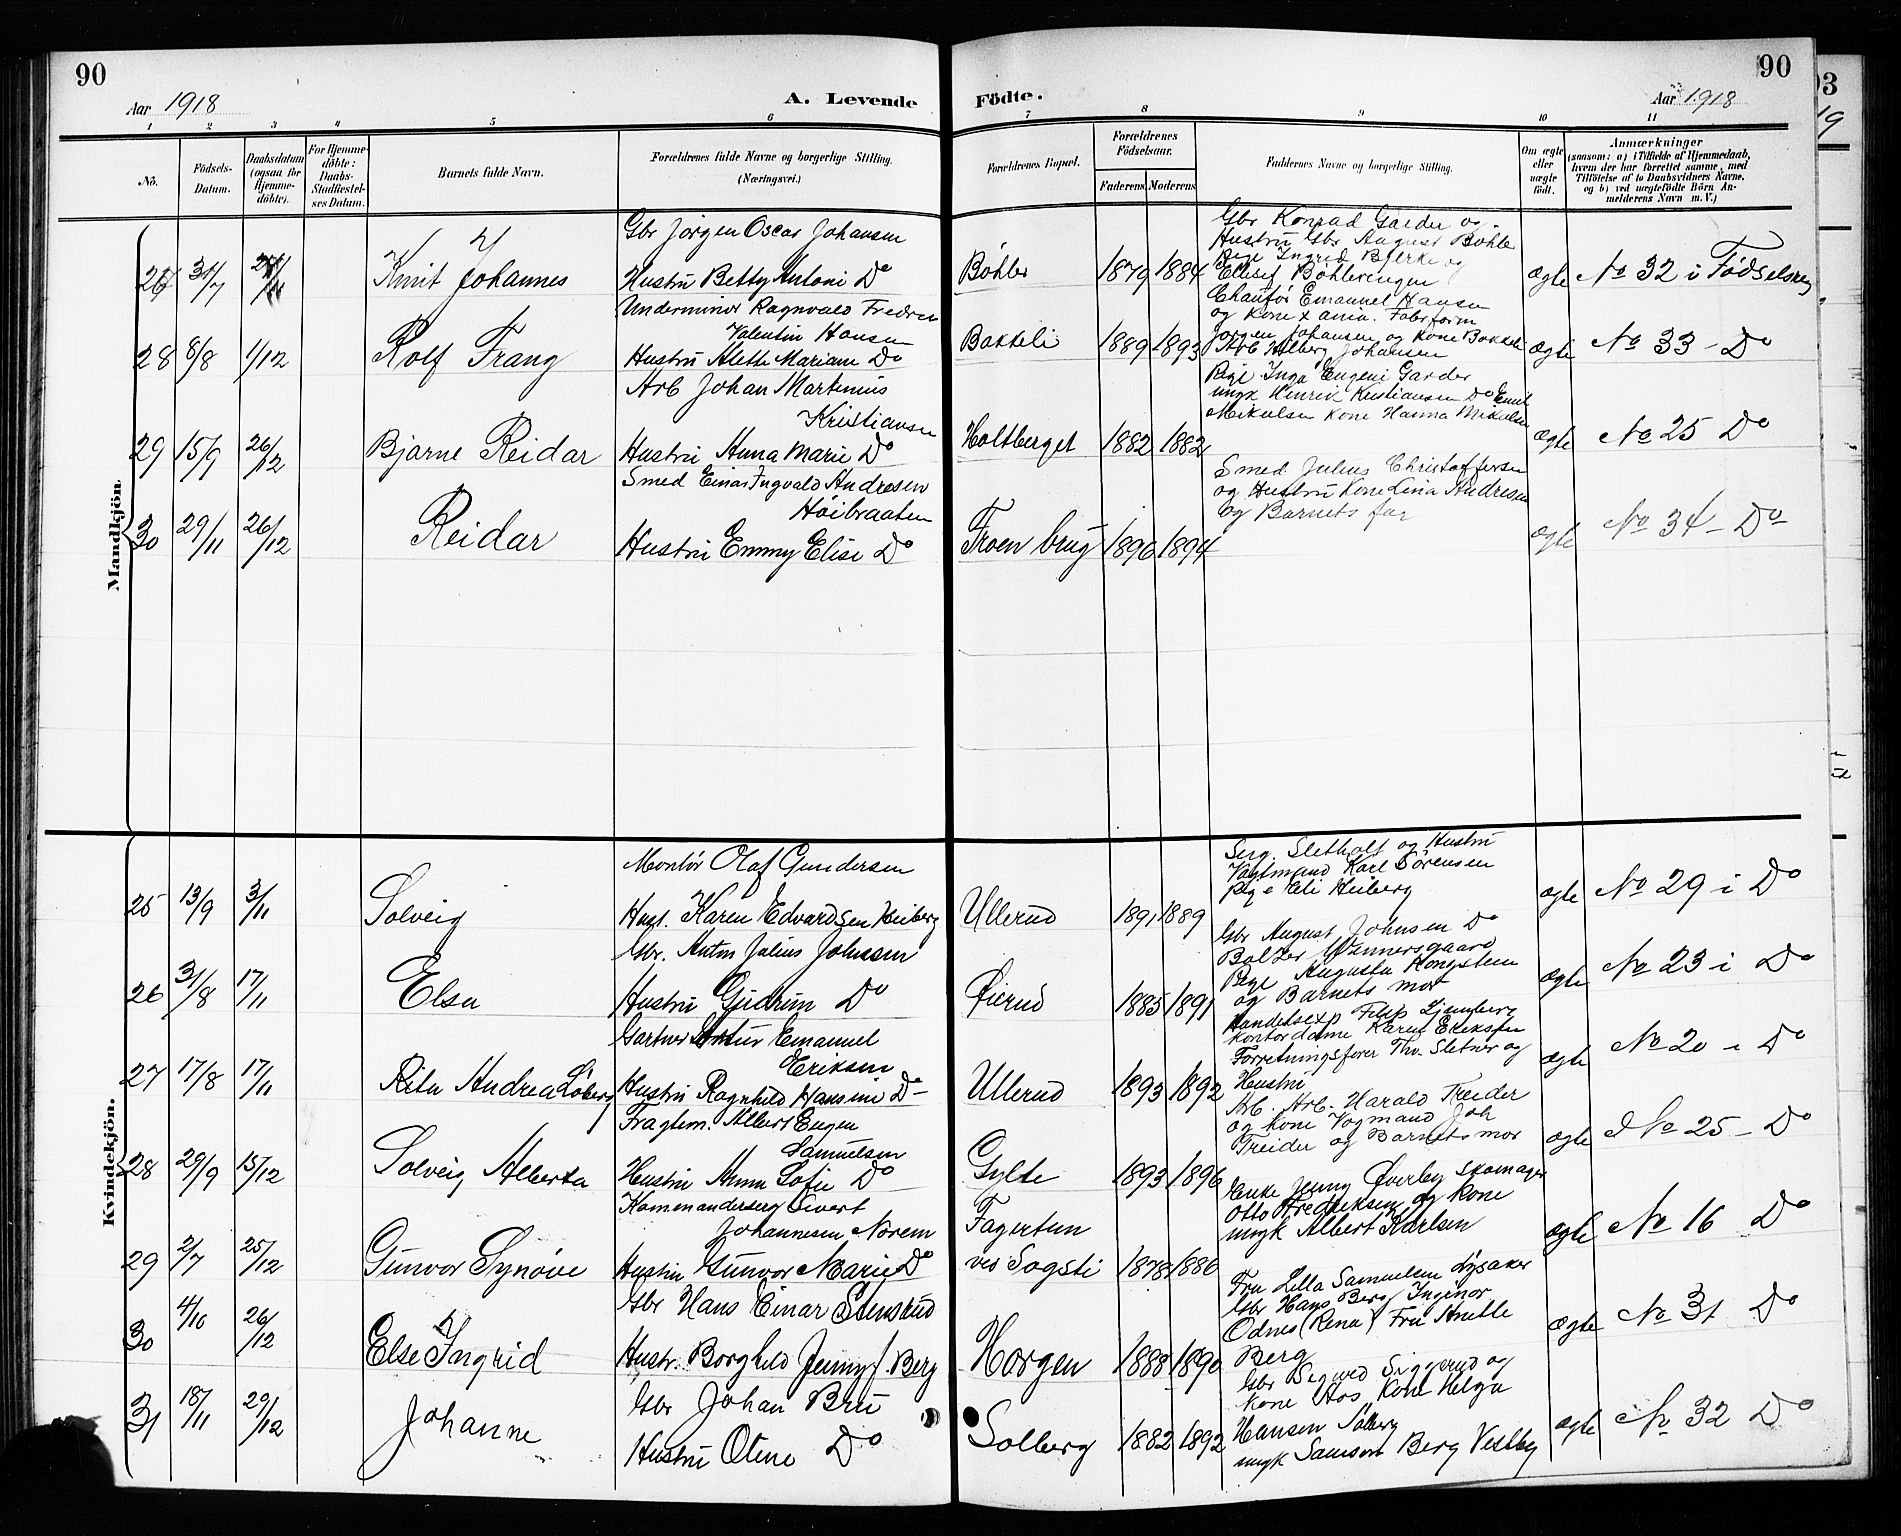 90
90
Aar 1918
A. Levende Födte.
Aar 1918
1 2 3 4 5 6 7 8 9 10 11
No.
Födsels-Datum.
Daabsdatum (ogsaa for Hjemmedöbte).
For Hjemmedöbte: Daabs-Stadfæstelses Datum.
Barnets fulde Navn.
Forældrenes fulde Navne og borgerlige Stilling.
(Næringsvei.)
Forældrenes Bopæl.
Forældrenes Födselsaar.
Faderens. Moderens.
Faddernes Navne og borgerlige Stilling.
Om ægte eller uægte født.
Anmærkninger
(saasom: a) i Tilfælde af Hjemmedaab, hvem der har forrettet samme, med Tilføielse af to Daabsvidners Navne, og b) ved uægtefødte Börn Anmelderens Navn m. V.)
Mandkjön
Gbr Jörgen Oscar Johansen
Gbr Konrad Garder og
Hustru Gbr August Böhle
Pige Ingrid Bjerke og
Ellisif Böhlerengen
31/7 Knut Johannes
Hustru Betty Antoni Do
Böhler 1879 1884
ægte No 32 i Födselsreg
Underminör Ragnvald Fredrik
Valentin Hansen
Chauför Emanuel Hansen
28 8/8 1/12 Rolf Frang
Hustru Alette Mariane Do
Bakkeli 1889 1893
Jörgen Johansen og Kone Bakkeli
Arb Alberg Johansen
ægte No 33 – Do
Arb Johan Martinius
Kristiansen
Pige Inga Eugeni Garder
ungk Henrik Kristiansen Do Emil
Mikelsen Kone Hanna Mikelsen
29 15/9 26/12 Bjarne Reidar
Hustru Anna Marie Do
Holtberget 1882 1882
ægte No 25 Do
Smed Einar Ingvald Andresen
Höibraaten
Smed Julius Christoffersen
og Hustru Kone Lina Andresen
og Barnets far
30 29/11 26/12 Reidar
Hustru Emmy Elise Do
Froen brug 1896 1894
ægte No 34 – Do
Kvindekjön.
Montör Olaf Gundersen
Serg. Sletholt og Hustru
Vagtmand Karl Sörensen
Pige Eli Heiberg
25 13/9 3/11 Solveig
Hust. Karen Edvardsen Heiberg
Ullerud 1891 1889
ægte No 29 i Do
Gbr. Anton Julius Johnsen
Gbr August Johnsen Do
Pige Augusta Kongsteen
og Barnets mor
26 31/8 17/11 Elsa
Hustru Gudrun Do
Öierud 1885 1891
ægte No 23 i Do
Gartner Emanuel
Eriksen
Handelsexp Filip Ljunberg
Kontordame Karen Eriksen
Forretningsförer Thv. Sletner og
Hustru
27 17/8 17/11 Rita Andrea Löberg
Hustru Ragnhild Hansine Do
Ullerud 1893 1892
ægte No 20 i Do
Fragtem. Albert Eugen
Samuelsen
Arb. Arb. Harald Treider
og Kone Vogmand Joh
Treider og Barnets mor
28 29/9 15/12 Solveig Alberta
Hustru Anna Sofie Do
Gylte 1893 1896
ægte No 25 – Do
Sivert
Johannesen Norem
Enke Jenny Överby Skomager
Otto Fredriksen og Kone
ungk Albert Karlsen
29 2/7 25/12 Gunvor Synöve
Hustru Gunvor Marie Do
Fagertun
ved Sogsti 1878 1886
ægte No 16 Do
Gbr Hans Einar Stensrud
Fru Lilla Samuelsen Lysaker
Gbr Hans Berg Inginör
Ödnes (Rena) Fru Anette
Berg
30 4/10 26/12 Else Ingrid
Hustr. Borghild Jenny f. Berg
Horgen 1888 1890
ægte No 31 Do
Gbr Johan Bru
Gbr Sigurd Siggerud og
Kone Aas Kone Helga
Hansen Solberg
ungk Samson Berg Vestby
31 18/11 29/12 Johanne
Hustru Otine Do
Solberg 1882 1892
ægte No 32 Do